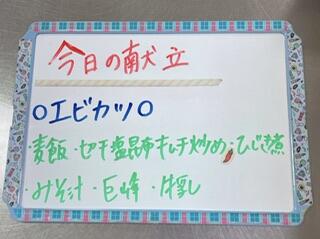 今日の献立
○エビカツ○
・麦飯・切干塩昆布キムチ炒め・ひじき煮
・みそ汁・巨峰・牛乳